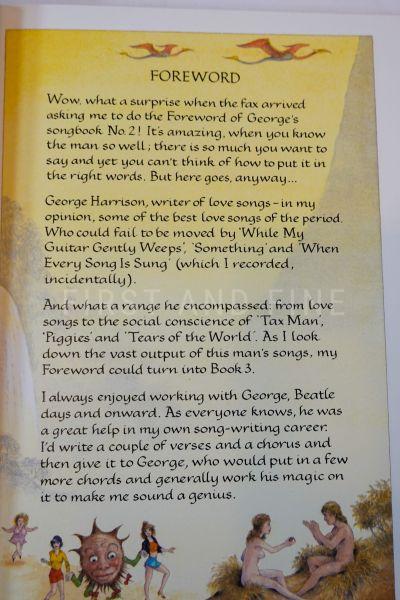 FOREWORD
Wow, what a surprise when the fax arrived
asking me to do the Foreword of George's
songbook No.2! It's amazing, when you know
the man so well; there is so much you want to
say and yet you can't think of how to put it in
the right words. But here goes, anyway...
George Harrison, writer of love songs – in my
opinion, some of the best love songs of the period.
Who could fail to be moved by 'While My
Guitar Gently Weeps', 'Something' and 'When
Every Song Is Sung' (which I recorded,
incidentally).
FIRST AND FINE
And what a range he encompassed: from love
songs to the social conscience of 'Tax Man',
'Piggies' and 'Tears of the World'. As I look
down the vast output of this man's songs, my
Foreword could turn into Book 3.
I always enjoyed working with George, Beatle
days and onward. As everyone knows, he was
a great help in my own song-writing career.
I'd write a couple of verses and a chorus and
then give it to George, who would put in a few
more chords and generally work his magic on
it to make me sound a genius.